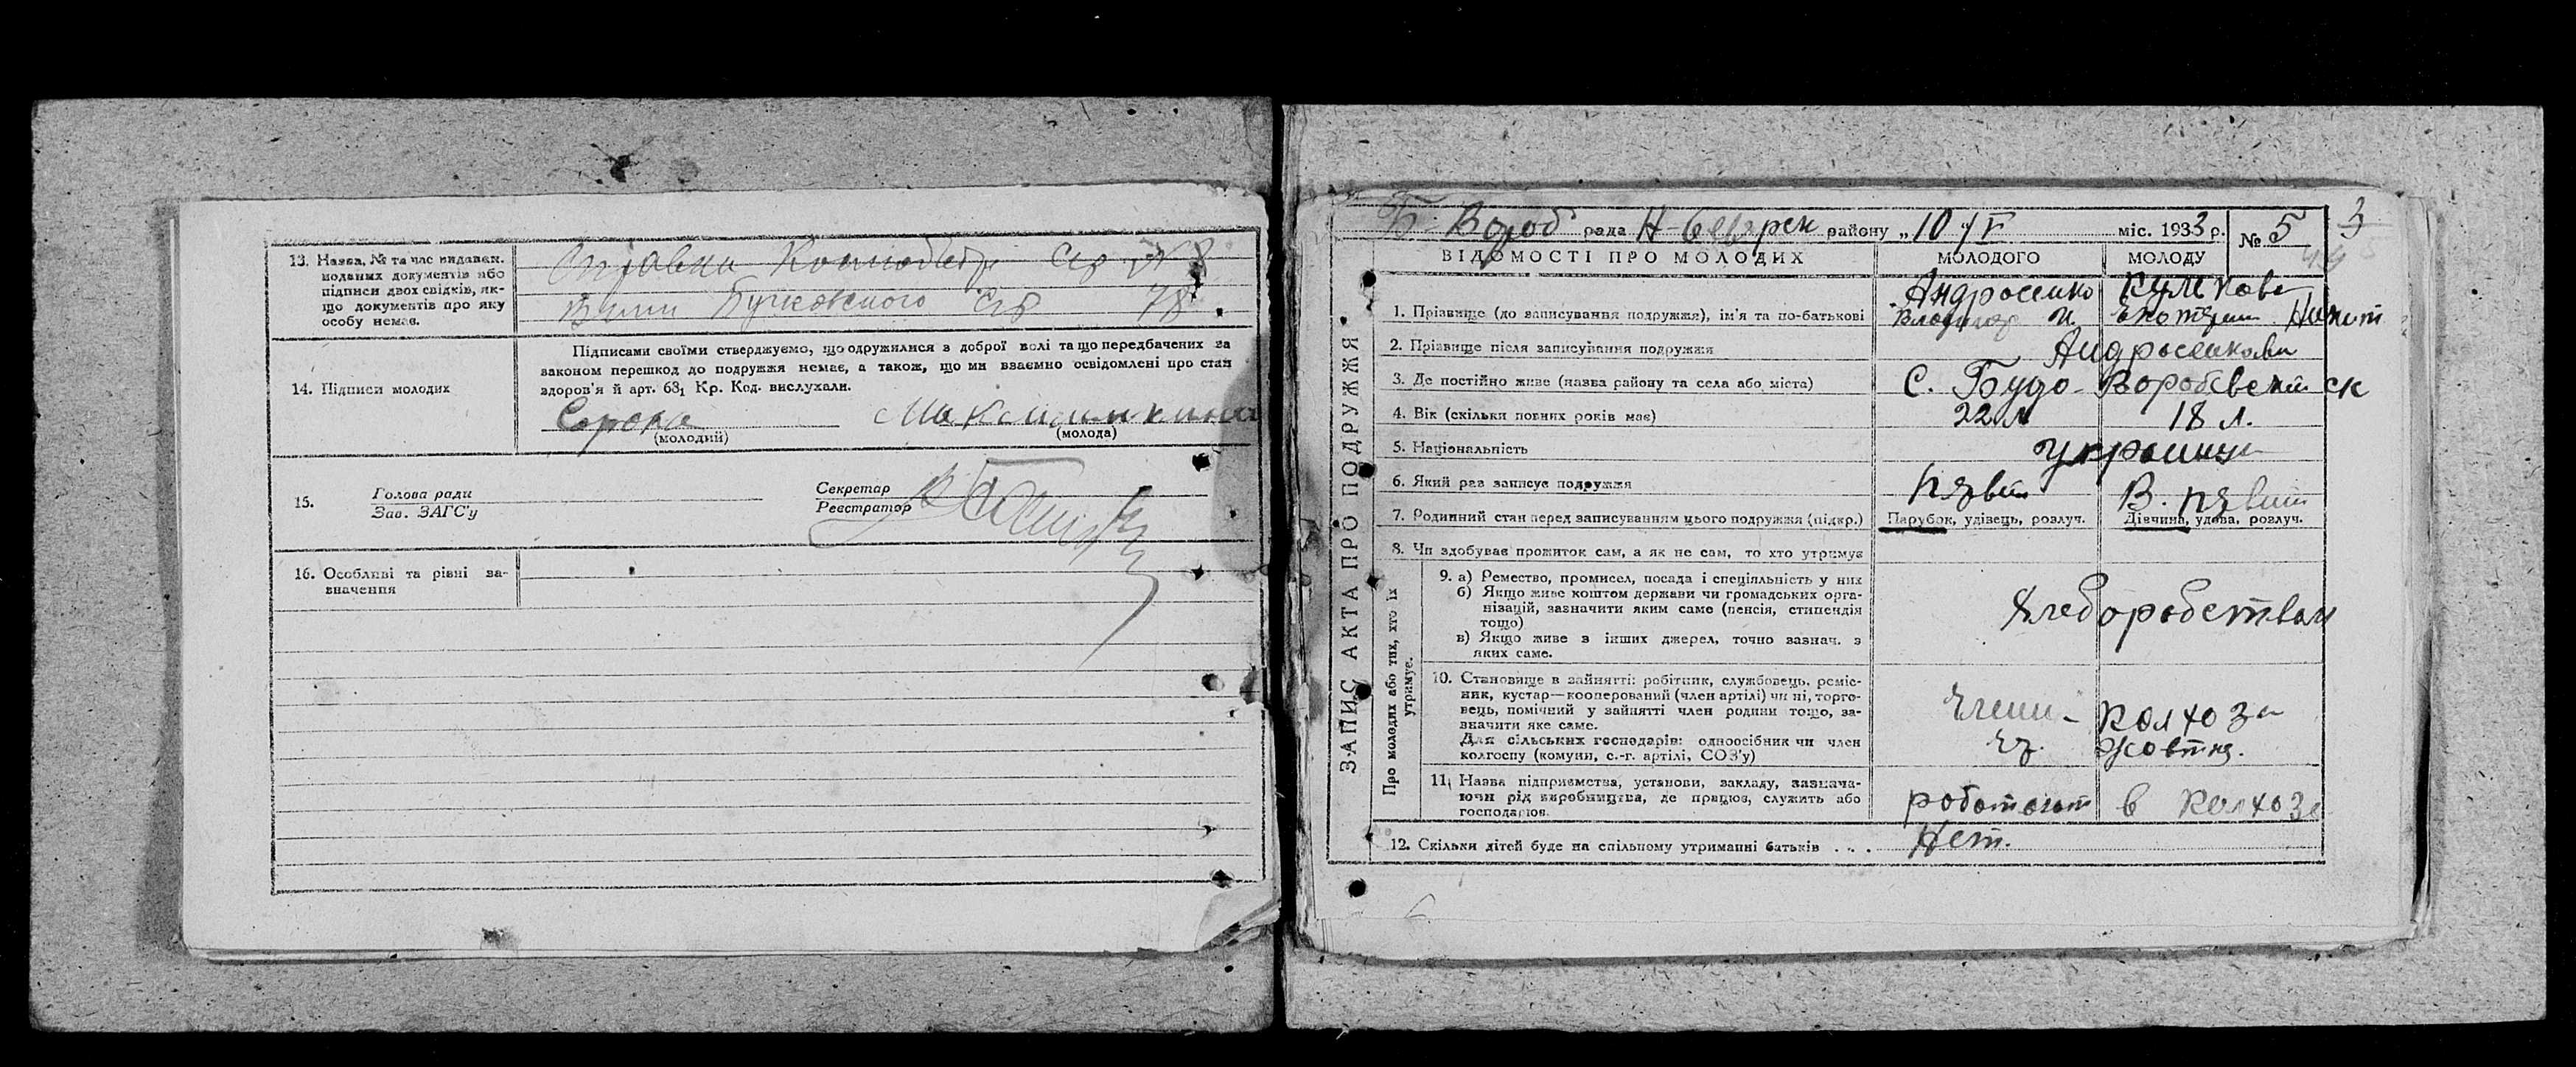 13. Назва, № та час видаван.
поданих документів або
підписи двох свідків, як-
що документів про яку
особу немає.
Справки
Бучковского 78
14. Підписи молодих
Підписами своїми стверджуємо, що одружилися з доброї волі та що передбачених за
законом перешкод до подружжя немає, а також, що ми взаємно освідомлені про стан
здоров'я й арт. 68₁ Кр. Код. вислухали.
Сорока Максимихина
(молодий) (молода)
15. Голова ради
Зав. ЗАГС'у
Секретар
Реєстратор
16. Особливі та рівні за-
значення
3
Б-Вороб рада Н-Северск району „10 /V міс. 1933 р. № 5
ВІДОМОСТІ ПРО МОЛОДИХ МОЛОДОГО МОЛОДУ
ЗАПИС АКТА ПРО ПОДРУЖЖЯ
1. Прізвище (до записування подружжя), ім'я та по-батькові
Андросенко
Владимир И.
2. Прізвище після записування подружжя Андросенкови
3. Де постійно живе (назва району та села або міста) С. Будо-Воробьевский ск
4. Вік (скільки повних років має) 22 л 18 л.
5. Національність украинци
6. Який раз записує подружжя первый В. первый
7. Родинний стан перед записуванням цього подружжя (підкр.) Парубок, удівець, розлуч. Дівчина, удова, розлуч.
8. Чи здобуває прожиток сам, а як не сам, то хто утримує
Про молодих або тих, хто їх
утримує.
9. а) Ремество, промисел, посада і спеціяльність у них
б) Якщо живе коштом держави чи громадських орга-
нізацій, зазначити яким саме (пенсія, стипендія
тощо)
в) Якщо живе з інших джерел, точно зазнач. з
яких саме.
Хлеборобством
10. Становище в зайнятті: робітник, службовець, реміс-
ник, кустар—кооперований (член артілі) чи ні, торго-
вець, помічний у зайнятті член родини тощо, за-
значити яке саме.
Для сільських господарів: одноосібник чи член
колгоспу (комуни, с.-г. артілі, СОЗ'у)
Члени - колхоза
Чр. Жовтня.
11. Назва підприємства, установи, закладу, зазнача-
ючи рід виробництва, де працює, служить або
господарює.
работают в колхозе
12. Скільки дітей буде на спільному утриманні батьків . . . Нет.